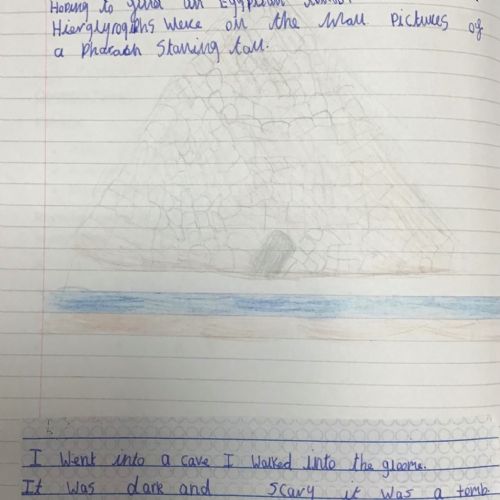 Hoping to find an Egyptian
Hierglyrophs were on the wall pictures of
a Pharaoh Staning tall.
I went into a cave I walked into the gloome.
It was dark and scary it was a tomb